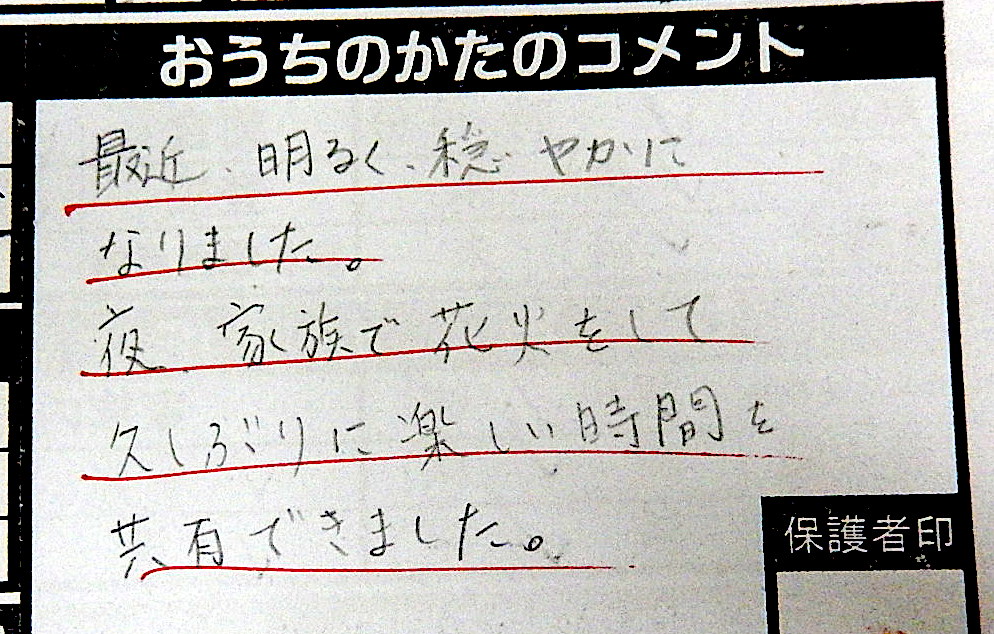 おうちのかたのコメント
最近、明るく、穏やかに
なりました。
夜、家族で花火をして
久しぶりに楽しい時間を
共有できました。
保護者印